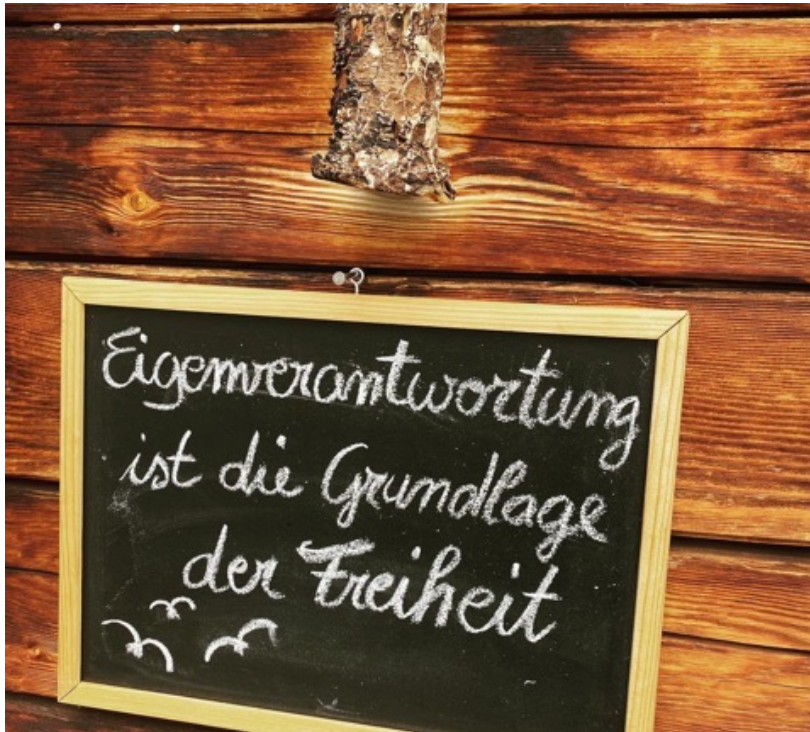 Eigenverantwortung
ist die Grundlage
der Freiheit